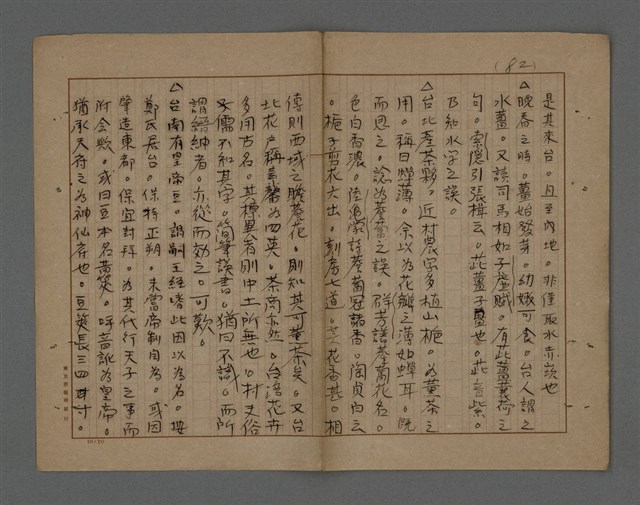 (82)
是其來台。且至內地。非僅取水赤崁也
△晚春之時。薑始發芽。幼嫩可食。台人謂之
水薑。又讀司馬相如子虛賦。有茈薑蘘荷之
句。索隱引張楫云。茈薑子薑也。茈音紫。
乃知水字之誤。
△台北產茶夥。近村農字多植山梔。為薰茶之
用。稱曰蟬薄。余以為花瓣之薄如蟬耳。既
而思之。諗為詹蔔之誤。群芳譜詹蔔花名。
色白香濃。陸游詩詹蔔冠諸香。陶貞白云
。梔子剪花六出。刻房七道。芬花香甚。相
傳則西域之詹蔔花。則知其可薰茶矣。又台
北花戶稱素馨為四英。茶商亦然。台灣花卉
多用古名。其標異者則中土所無也。村夫俗
子儒不知其字。簡筆誤書。猶曰不識。而所
謂縉紳者。亦從而効之。可歎。
△台南有皇帝豆。謂嗣王經嗜此因以為名。按
鄭氏居台。保持正朔。未嘗帝制自為。或因
肇造東都。保宜封拜。為其代行天子之事而
附會歟。或曰豆本名黃筴。呼音訛為皇帝。
猶承天府之為神仙府也。豆筴長三四寸。